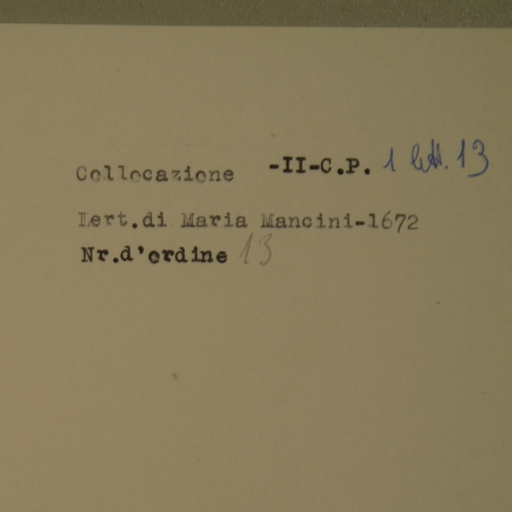 Collocazione -II-C.P. 1 lett. 13
Lert.di Maria Mancini-1672
Nr.d'ordine 13